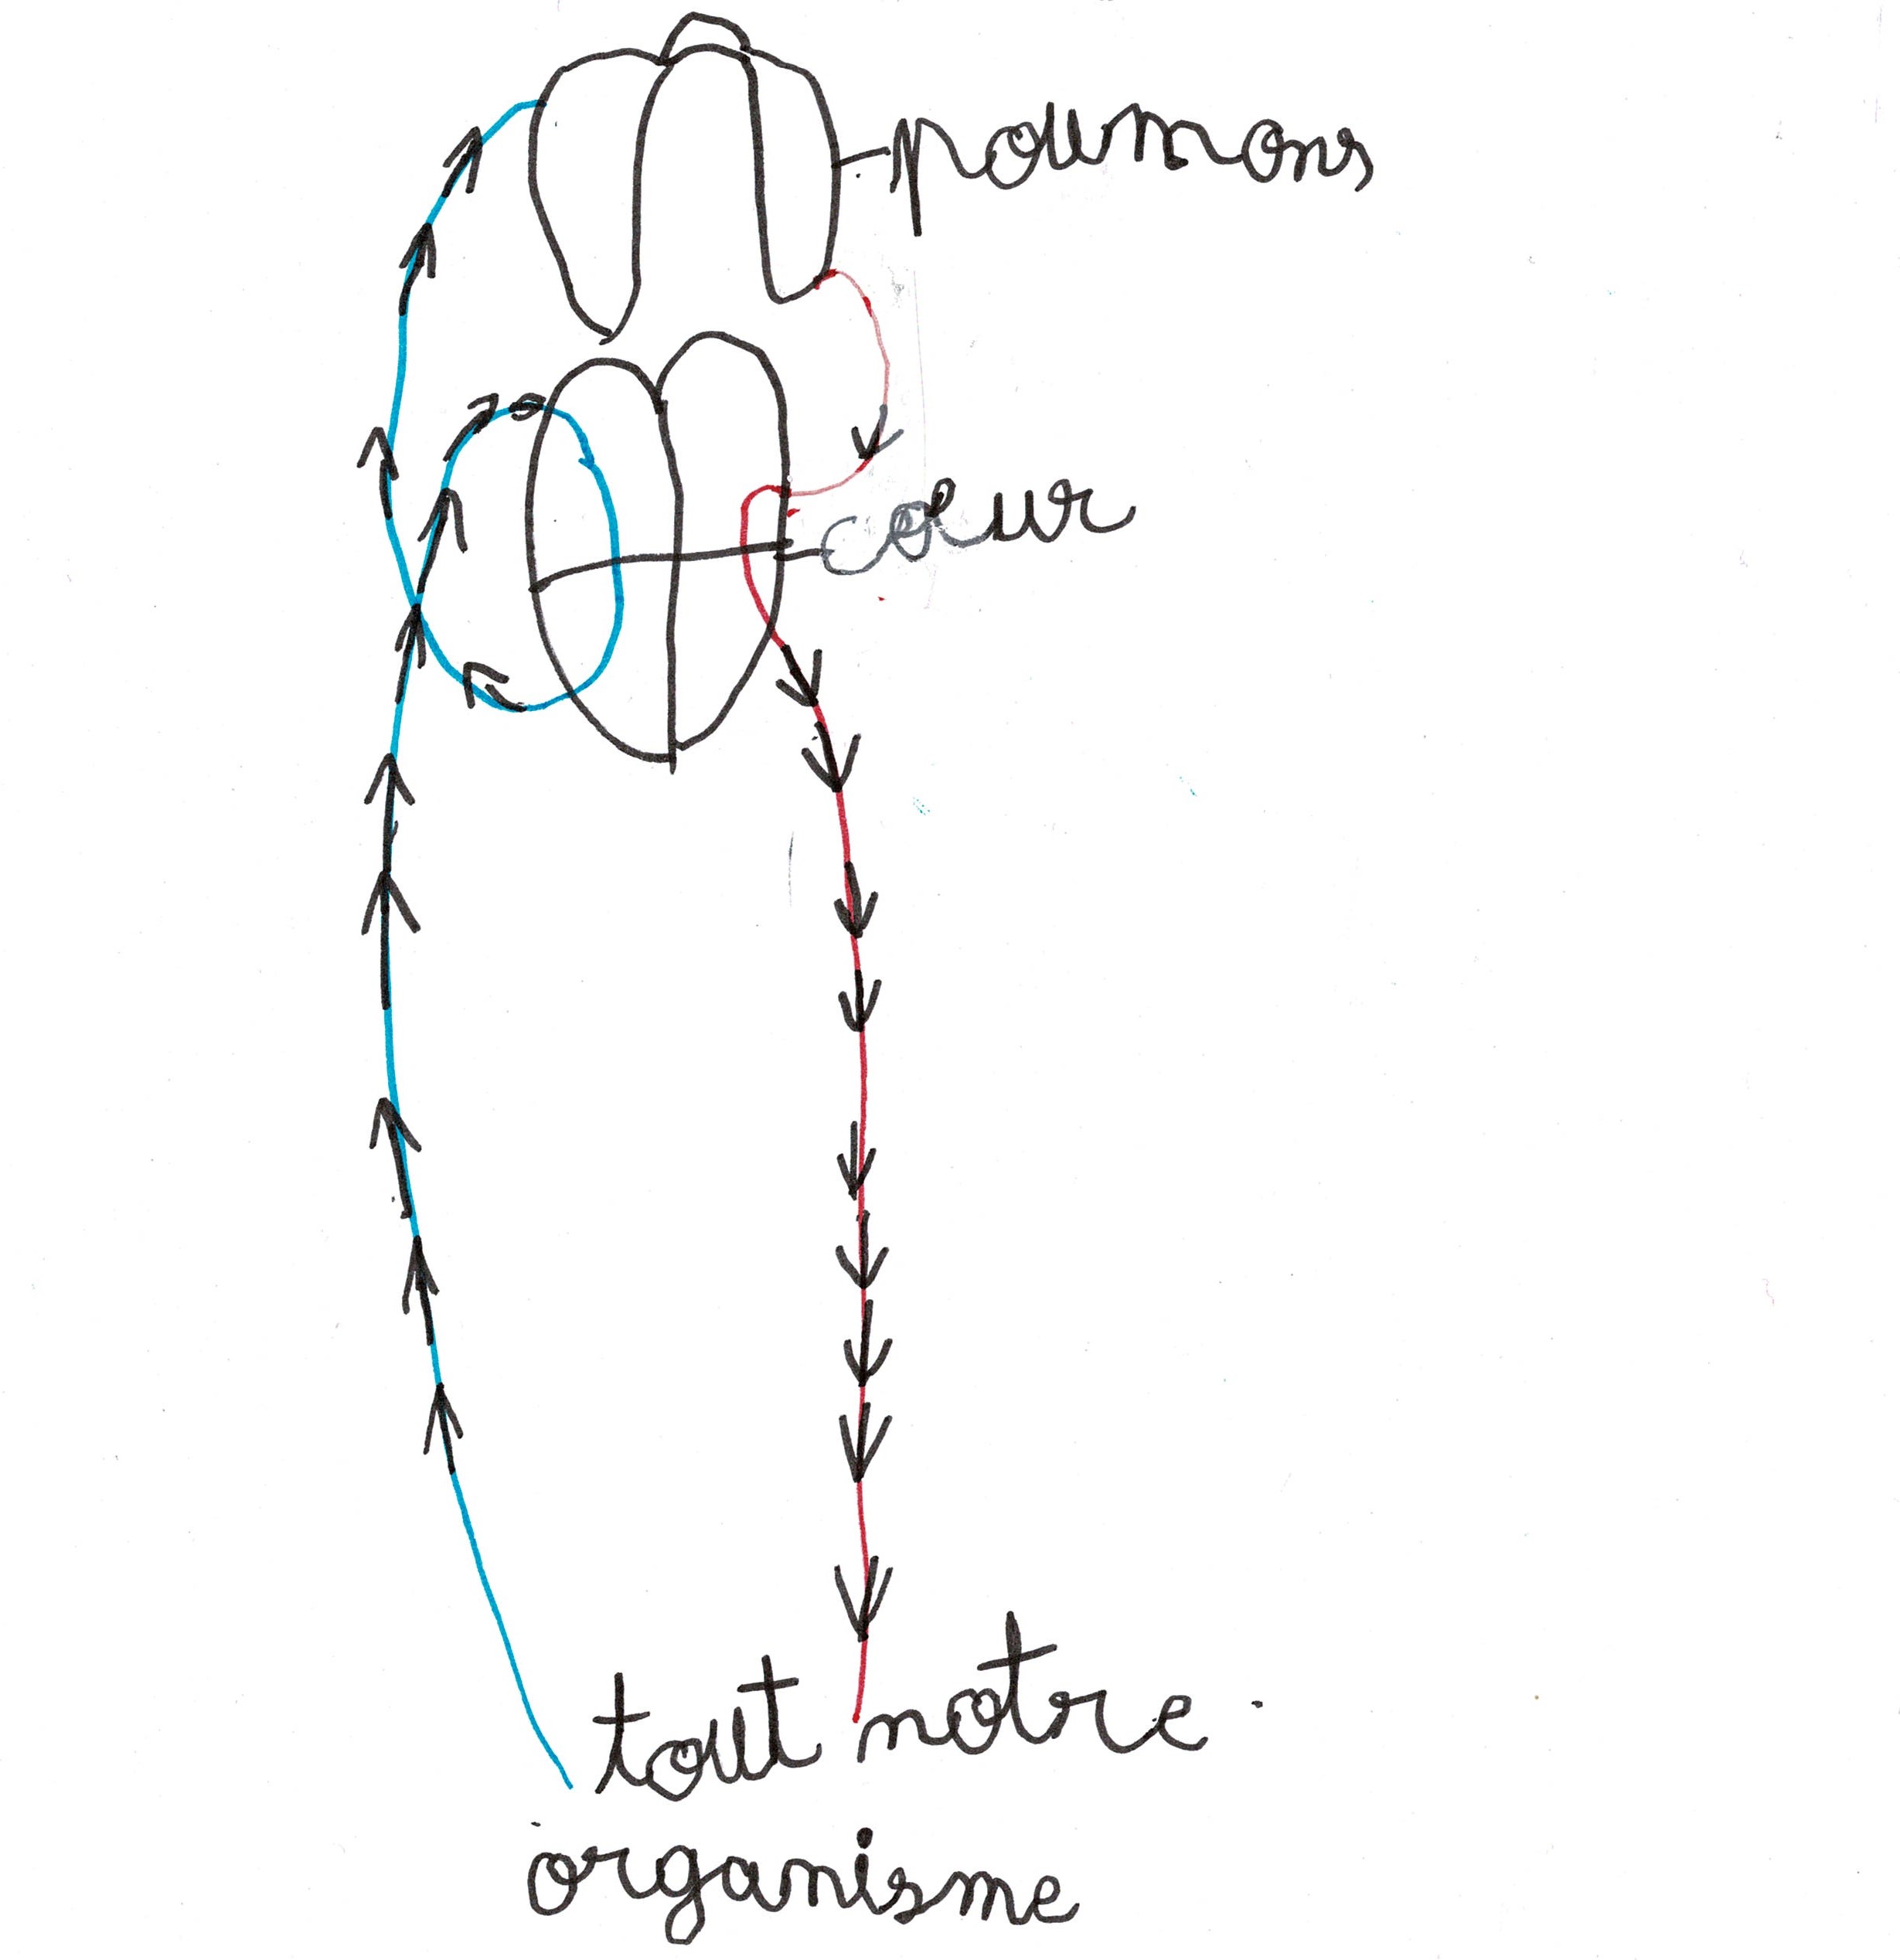 poumons
cœur
tout notre
organisme